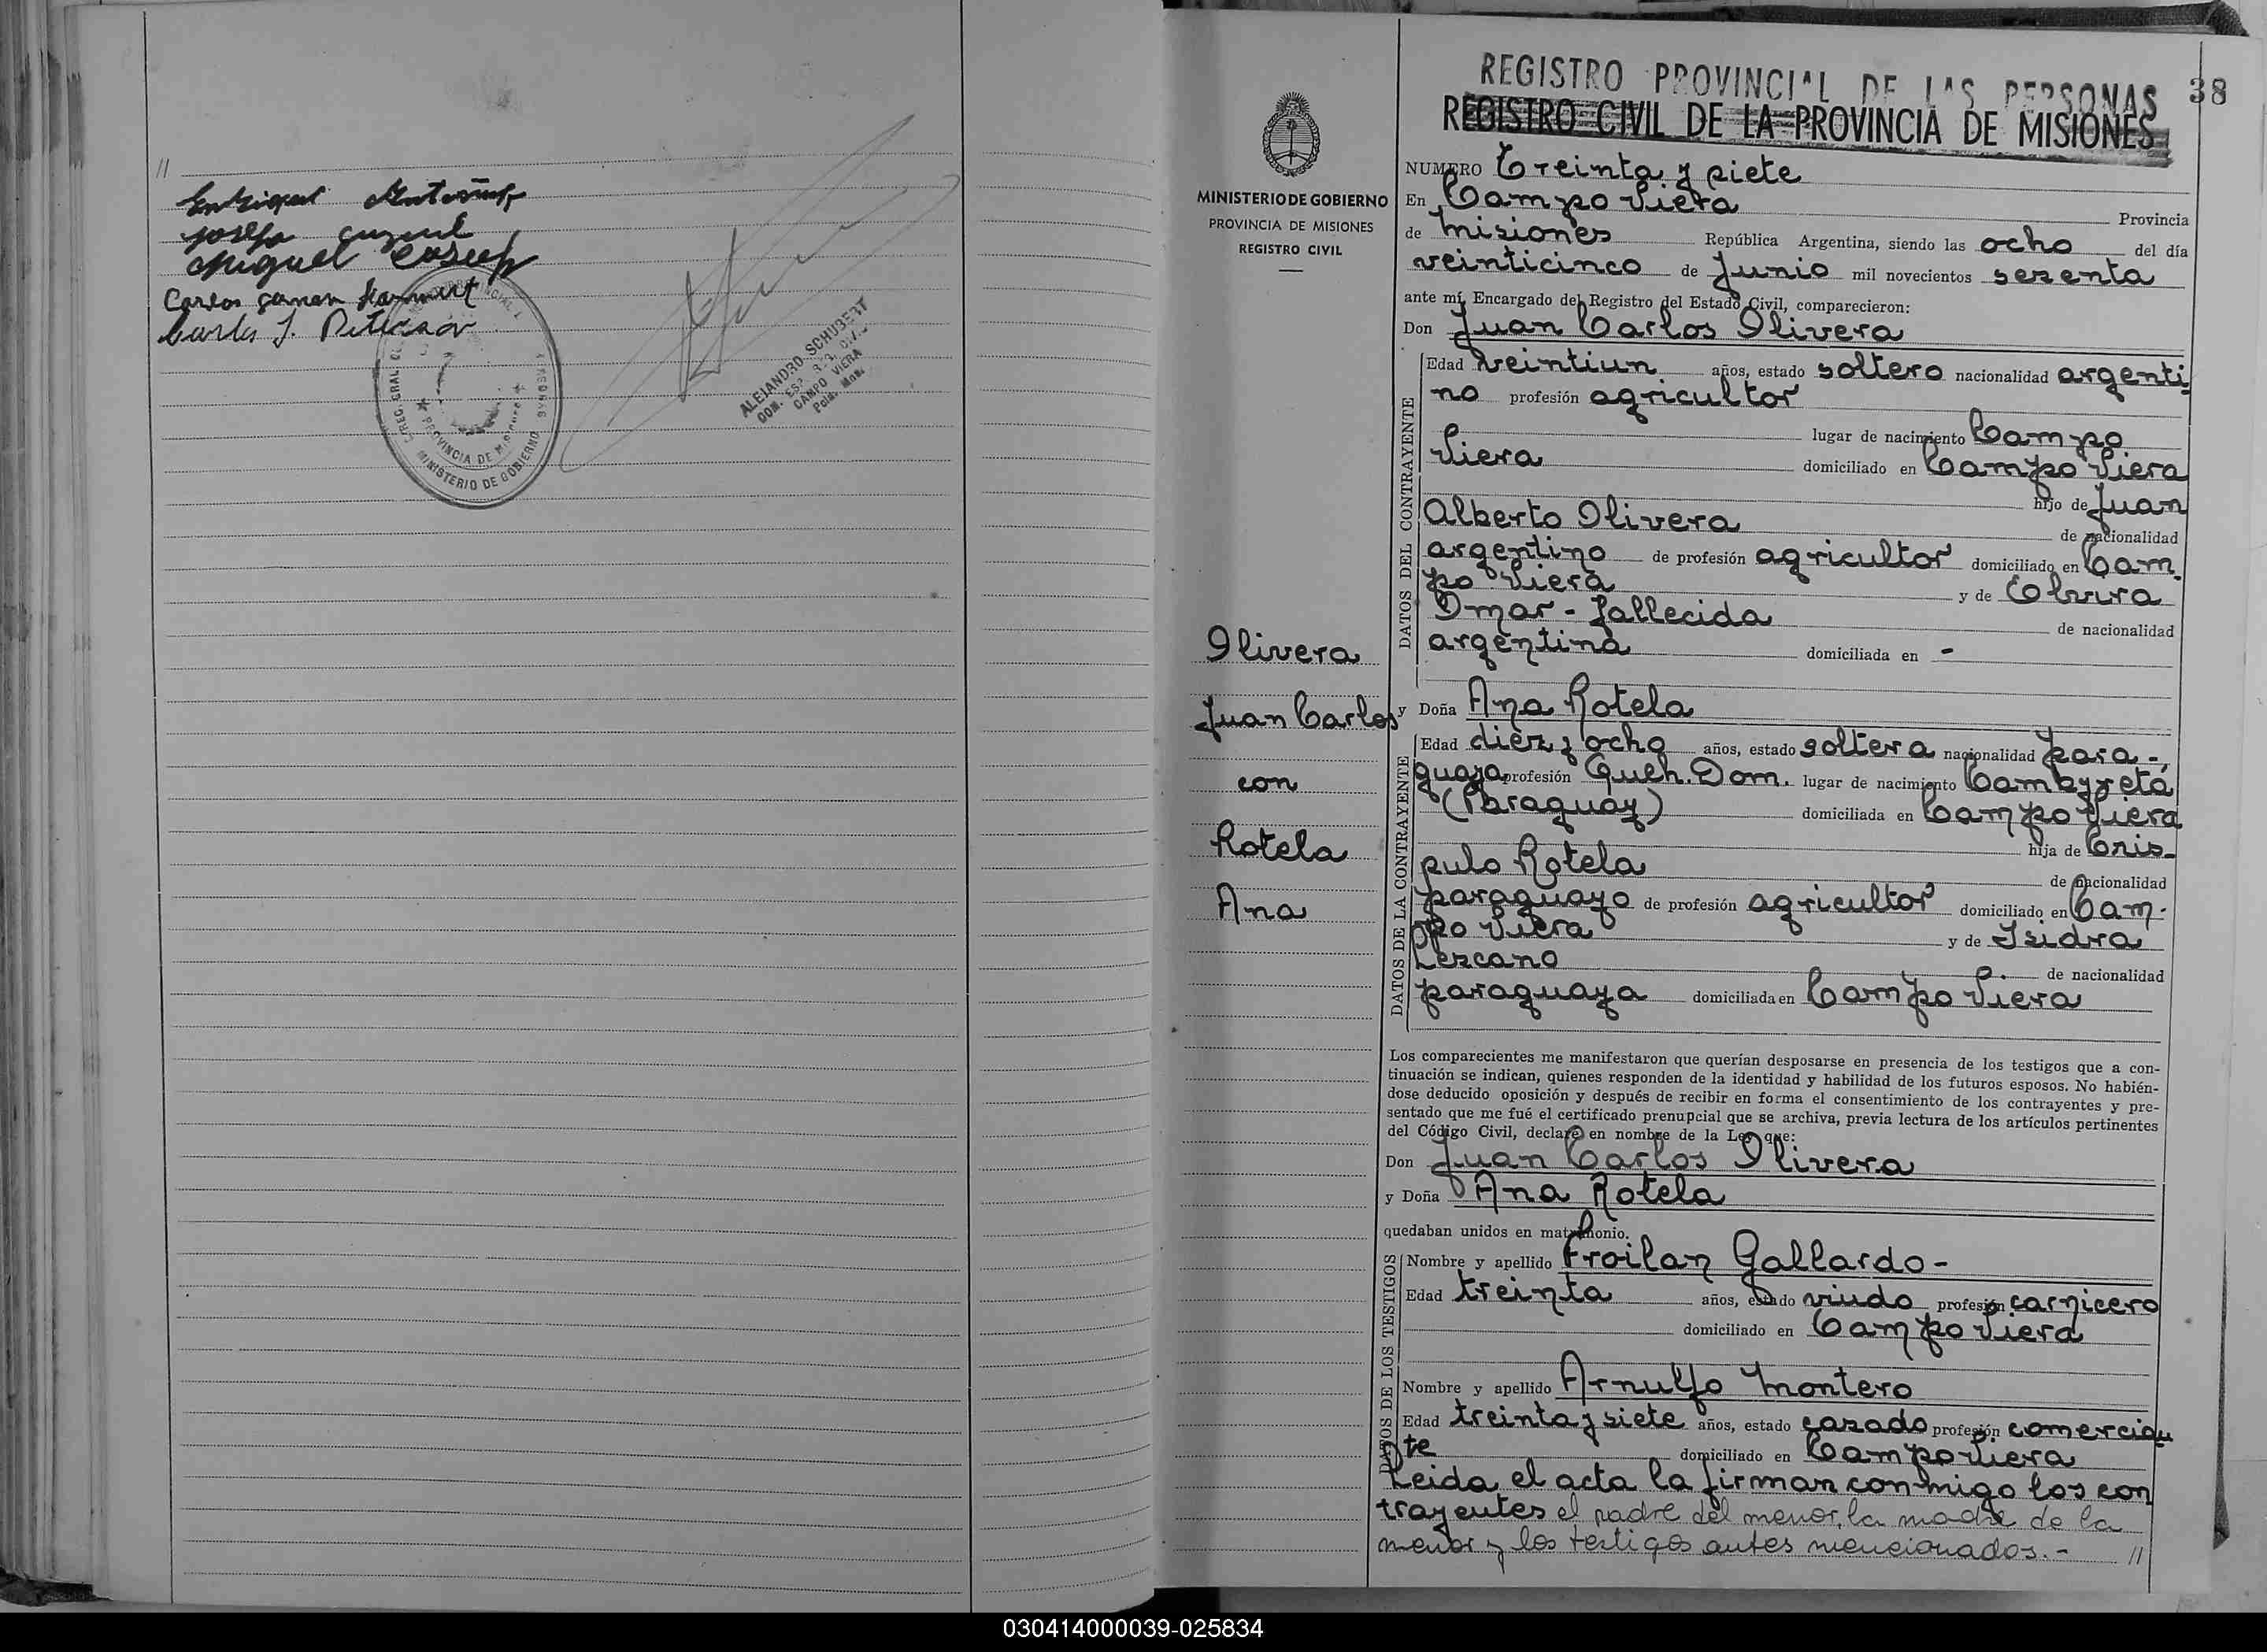 //
Miguel
Carlos
Carlos J.
PROVINCIA DE MISIONES
MINISTERIO DE GOBIERNO
ALEJANDRO SCHUBERT
CAMPO VIERA
Pcia. Mnes.
38
REGISTRO PROVINCIAL DE LAS PERSONAS
REGISTRO CIVIL DE LA PROVINCIA DE MISIONES
MINISTERIO DE GOBIERNO
PROVINCIA DE MISIONES
REGISTRO CIVIL
Olivera
Juan Carlos
con
Rotela
Ana
NUMERO Treinta y siete
En Campo Viera Provincia
de Misiones República Argentina, siendo las ocho del día
veinticinco de Junio mil novecientos sesenta
ante mí, Encargado del Registro del Estado Civil, comparecieron:
Don Juan Carlos Olivera
DATOS DEL CONTRAYENTE
Edad veintiun años, estado soltero nacionalidad argenti
no profesión agricultor
lugar de nacimiento Campo
Viera domiciliado en Campo Viera
hijo de Juan
Alberto Olivera de nacionalidad
argentino de profesión agricultor domiciliado en Cam
po Viera y de Elvira
Omar - fallecida de nacionalidad
argentina domiciliada en -
y Doña Ana Rotela
DATOS DE LA CONTRAYENTE
Edad diez y ocho años, estado soltera nacionalidad para-
guaya profesión Queh. Dom. lugar de nacimiento Cambyretá
(Paraguay) domiciliada en Campo Viera
hija de Cris-
pulo Rotela de nacionalidad
paraguayo de profesión agricultor domiciliado en Cam-
po Viera y de Isidra
Lezcano de nacionalidad
paraguaya domiciliada en Campo Viera
Los comparecientes me manifestaron que querían desposarse en presencia de los testigos que a con-
tinuación se indican, quienes responden de la identidad y habilidad de los futuros esposos. No habién-
dose deducido oposición y después de recibir en forma el consentimiento de los contrayentes y pre-
sentado que me fué el certificado prenupcial que se archiva, previa lectura de los artículos pertinentes
del Código Civil, declaré en nombre de la Ley que:
Don Juan Carlos Olivera
y Doña Ana Rotela
quedaban unidos en matrimonio.
DATOS DE LOS TESTIGOS
Nombre y apellido Froilan Gallardo-
Edad treinta años, estado viudo profesión carnicero
domiciliado en Campo Viera
Nombre y apellido Arnulfo Montero
Edad treinta y siete años, estado casado profesión comercian
te domiciliado en Campo Viera
Leida el acta la firman conmigo los con
trayentes el padre del menor, la madre de la
menor y los testigos antes mencionados.- //
030414000039-025834